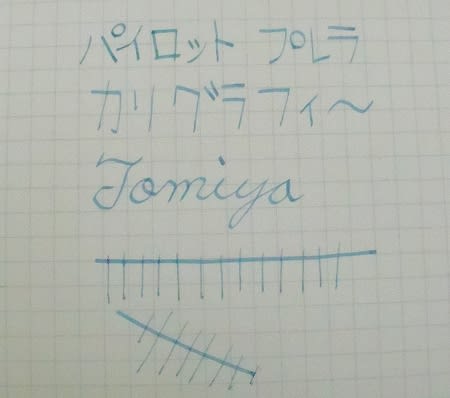 パイロット プレラ
カリグラフィ〜
Tomiya